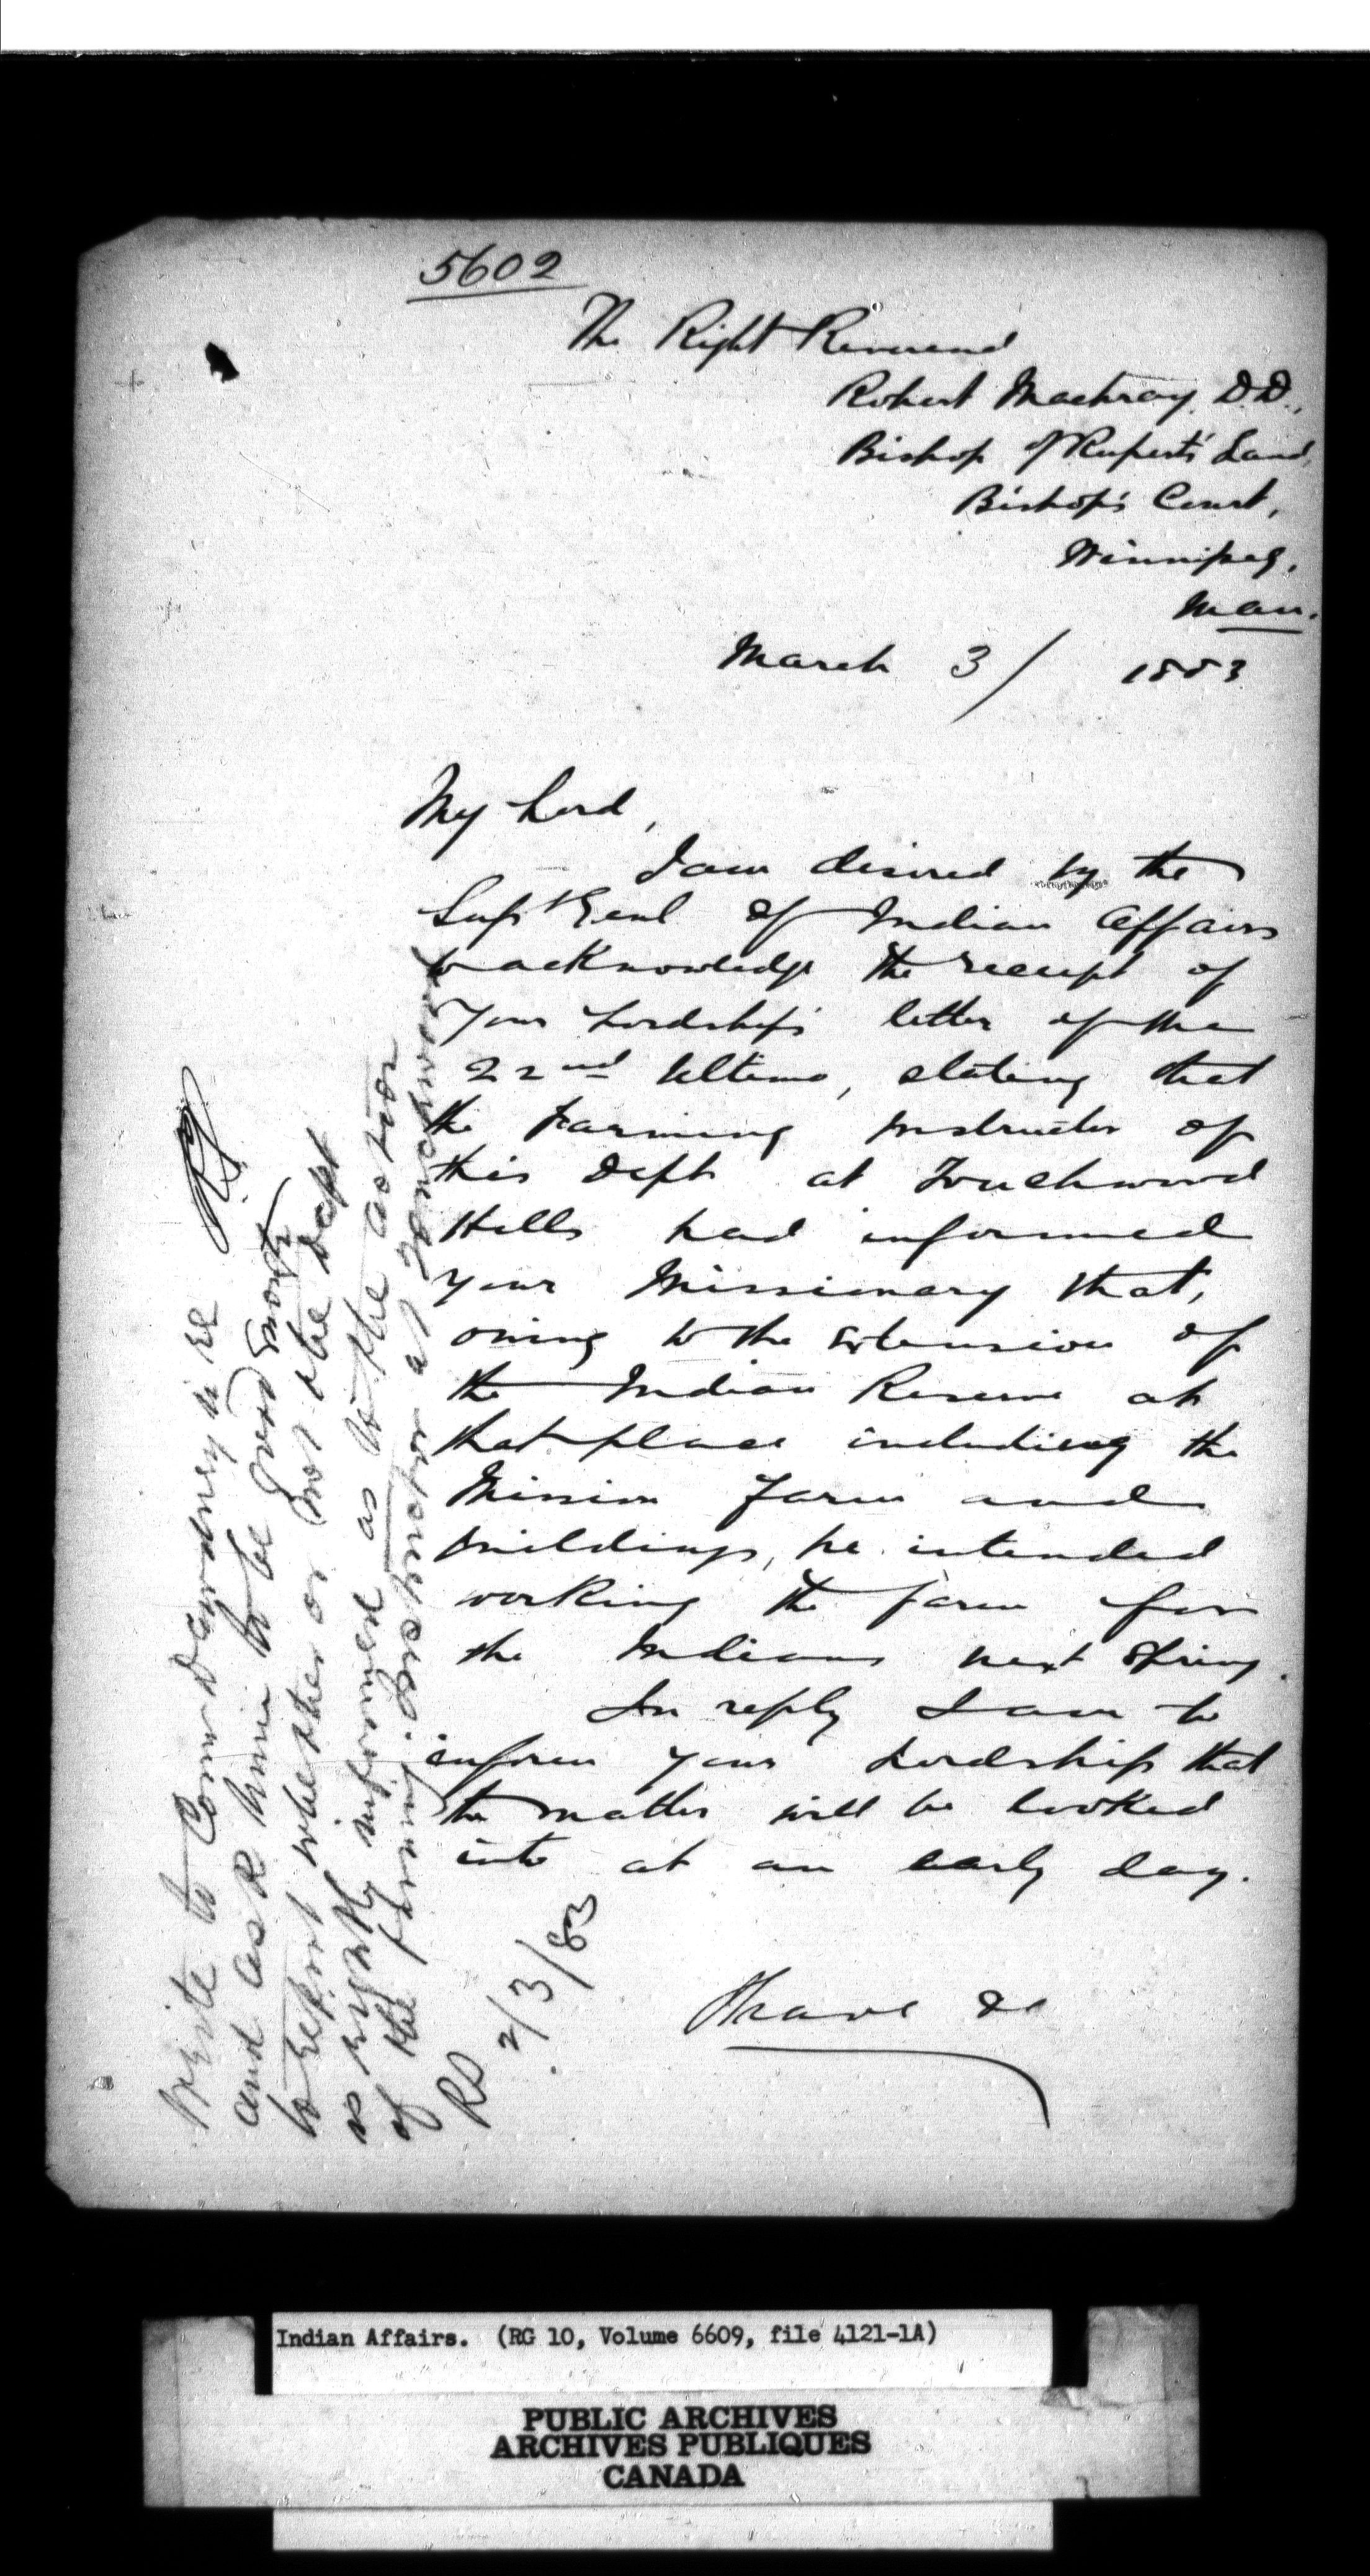 5602
The Right Reverend
Robert Machray D.D.,
Bishop of Rupert's Land,
Bishop's Court,
Winnipeg,
Man.
March 3/ 1883
My Lord,
I am desired by the
Supt Genl of Indian Affairs
to acknowledge the receipt of
Your Lordship's letter of the
22nd Ultimo, stating that
the Farming Instructor of
this Dept at Touchwood
Hills had informed
your Missionary that,
owing to the extension of
the Indian Reserve at
that place including the
Mission Farm and
buildings, he intended
working the farm for
the Indians next Spring.
In reply I am to
inform your Lordship that
the matter will be looked
into at an early day.
I have &c
Write to Comr Dewdney
and ask him to be good enough
to report whether or not the Dept
is rightly informed as to the action
of the farming instructor at Touchwood
2/3/83
Indian Affairs. (RG 10, Volume 6609, file 4121-1A)
PUBLIC ARCHIVES
ARCHIVES PUBLIQUES
CANADA